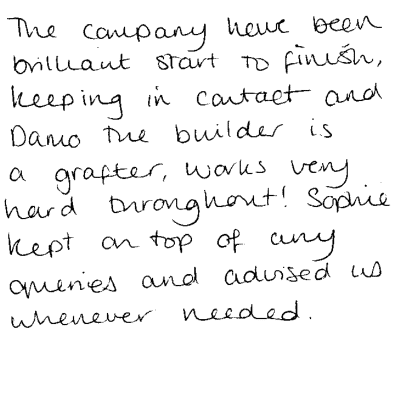 The company have been
brilliant start to finish,
keeping in contact and
Damo the builder is
a grafter, works very
hard throughout! Sophie
kept on top of any
queries and advised us
whenever needed.